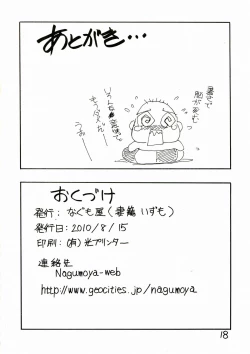 あとがき…
暑さで
脳が死む
いろんな意味で
もうダメだー
うおー
おくづけ
発行：なぐも屋（妻籠 いずも）
発行日：2010/8/15
印刷：(有)光プリンター
連絡先
Nagumoya-web
http://www.geocities.jp/nagumoya
18